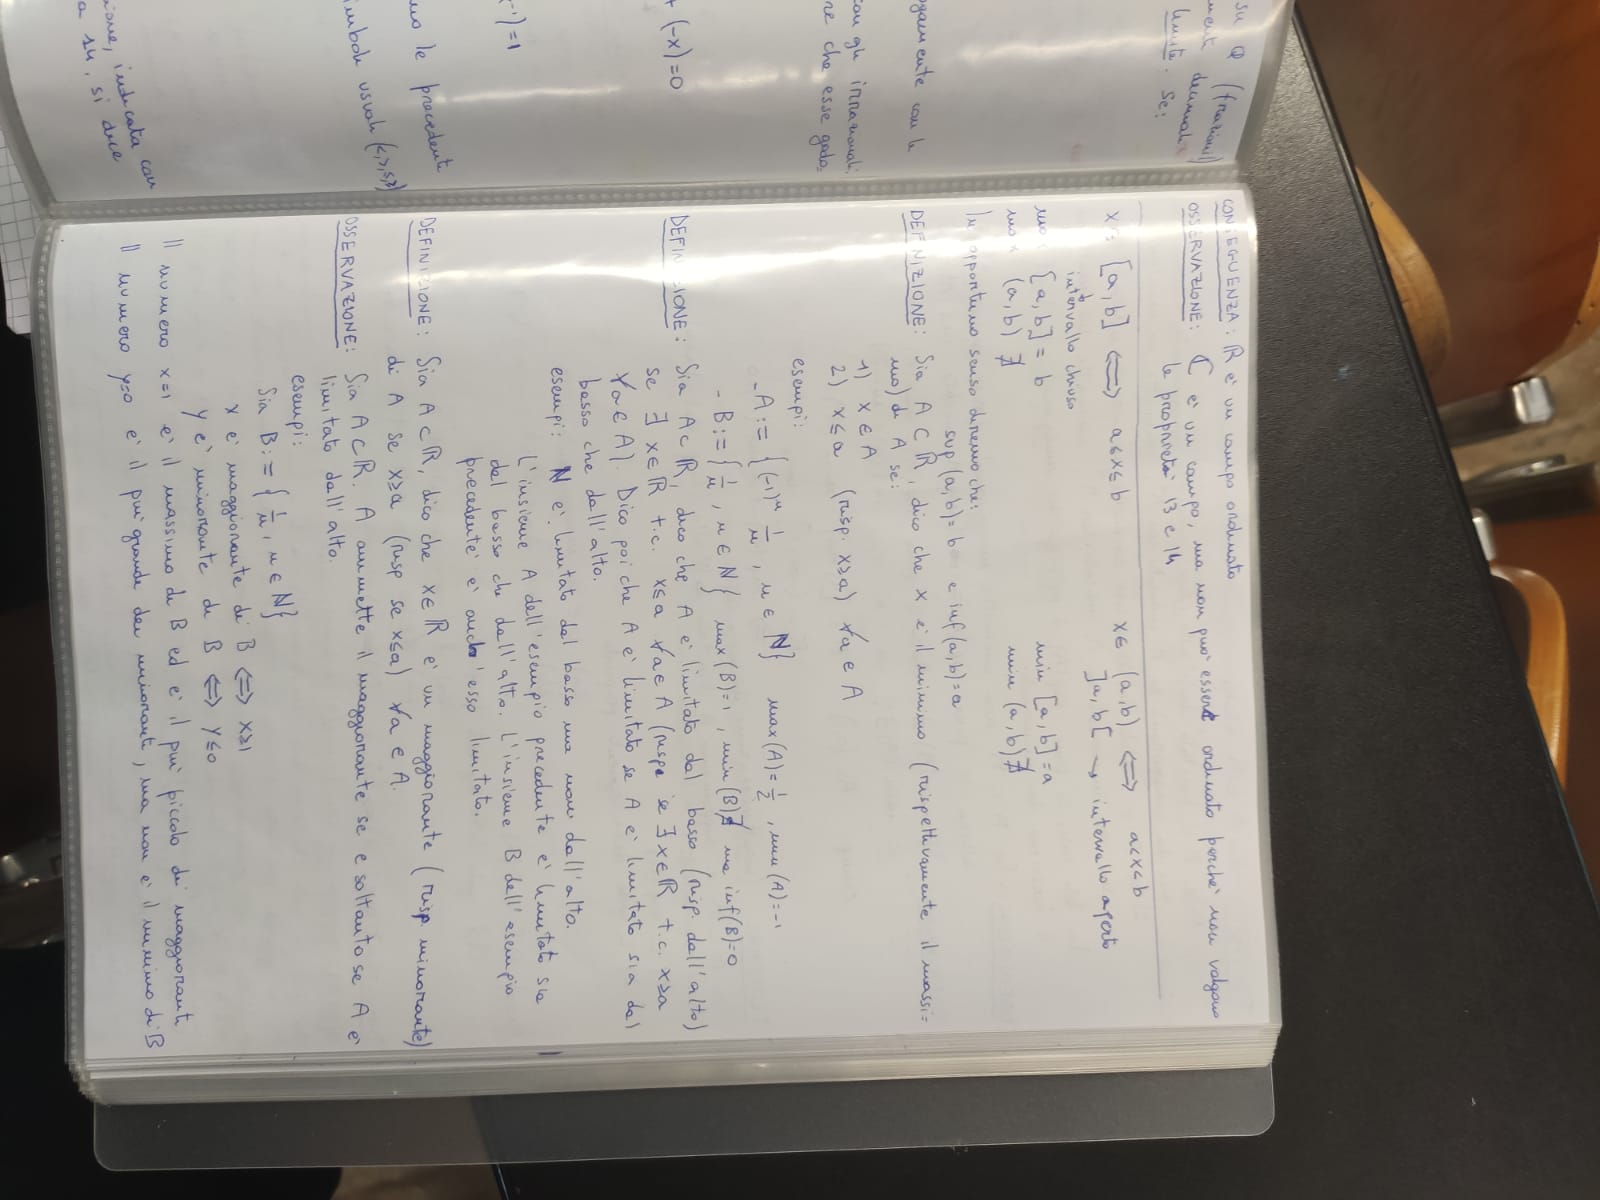 su Q (frazioni)
decimali
limite. Se:
con gli irrazionali
re che esse godo
+ (-x) = 0
mo le precedenti
imboli usuali (<,>,≤,≥)
indicata con
a su, si dice
CONSEGUENZA: ℝ è un campo ordinato
OSSERVAZIONE: ℂ è un campo, ma non può essere ordinato perché non valgono
le proprietà 13 e 14
[a,b] ⟺ a≤x≤b x∈ (a,b) ⟺ a<x<b
intervallo chiuso ]a,b[ → intervallo aperto
[a,b] = b min [a,b] = a
(a,b) ∄ min (a,b) ∄
In opportuno senso diremo che:
sup (a,b) = b e inf (a,b) = a
DEFINIZIONE: Sia A ⊂ ℝ, dico che x è il minimo (rispettivamente il massi=
mo) di A se:
1) x ∈ A
2) x ≤ a (risp. x≥a) ∀a ∈ A
esempi:
- A := {(-1)ⁿ 1/n, n ∈ ℕ} max(A) = 1/2, min(A) = -1
- B := {1/n, n ∈ ℕ} max(B)=1, min(B)∄ ma inf(B)=0
DEFINIZIONE: Sia A ⊂ ℝ, dico che A è limitato dal basso (risp. dall'alto)
se ∃ x∈ℝ t.c. x≤a ∀a∈A (rispe se ∃ x∈ℝ t.c. x≥a
∀a∈A). Dico poi che A è limitato se A è limitato sia dal
basso che dall'alto.
esempi: ℕ è limitato dal basso ma non dall'alto.
L'insieme A dell'esempio precedente è limitato sia
dal basso che dall'alto. L'insieme B dell'esempio
precedente è anch'esso limitato.
DEFINIZIONE: Sia A ⊂ ℝ, dico che x∈ℝ è un maggiorante (risp. minorante)
di A se x≥a (risp se x≤a) ∀a ∈ A.
OSSERVAZIONE: Sia A ⊂ ℝ. A ammette il maggiorante se e soltanto se A è
limitato dall'alto.
esempi:
Sia B := {1/n, n ∈ ℕ}
x è maggiorante di B ⟺ x≥1
y è minorante di B ⟺ y≤0
Il numero x=1 è il massimo di B ed è il più piccolo dei maggioranti
Il numero y=0 è il più grande dei minoranti, ma non è il minimo di B